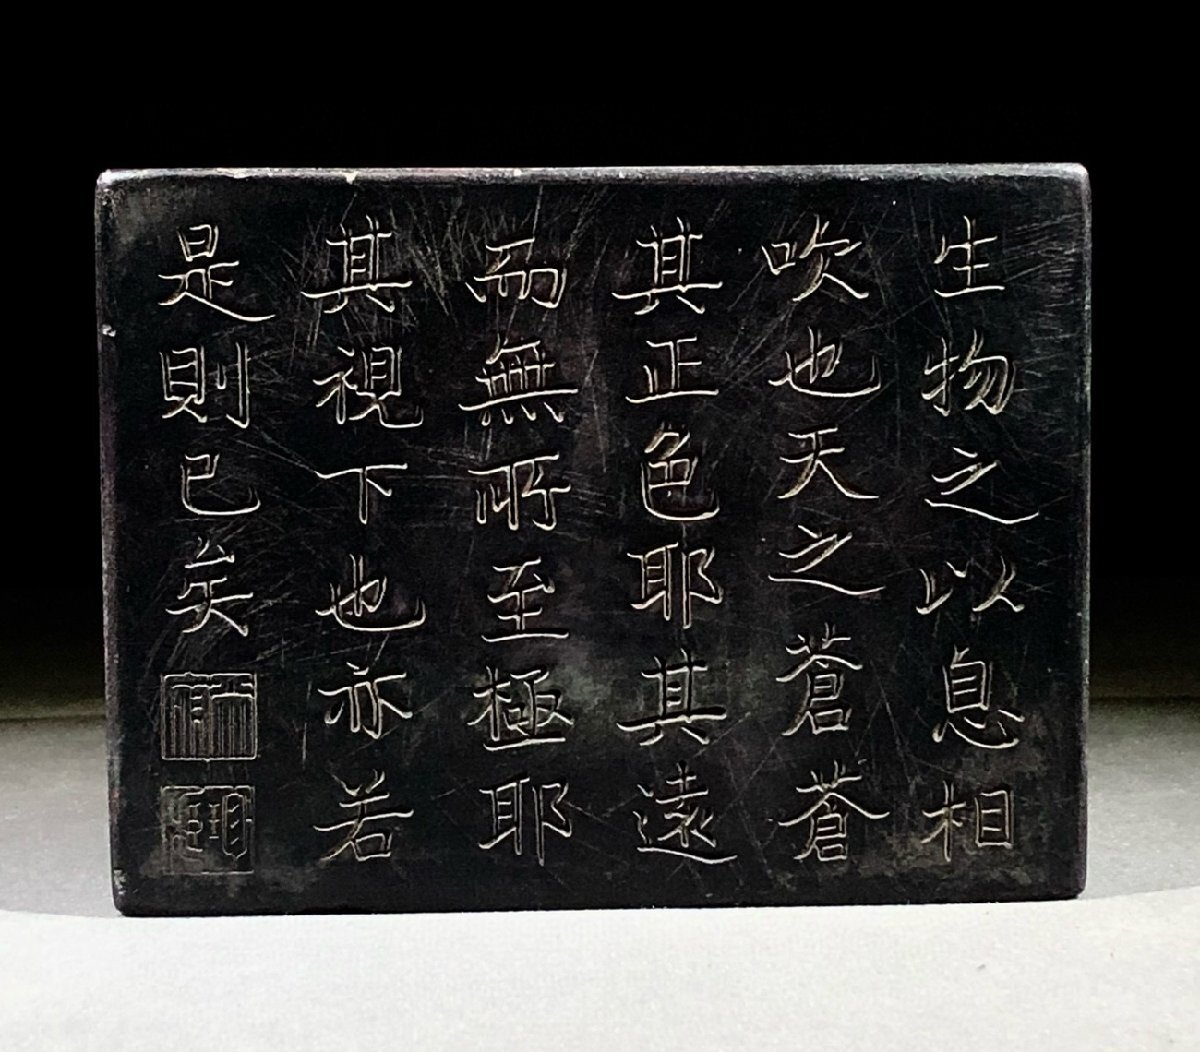 生物之以息相
吹也天之蒼蒼
其正色耶其遠
而無所至極耶
其視下也亦若
是則已矣